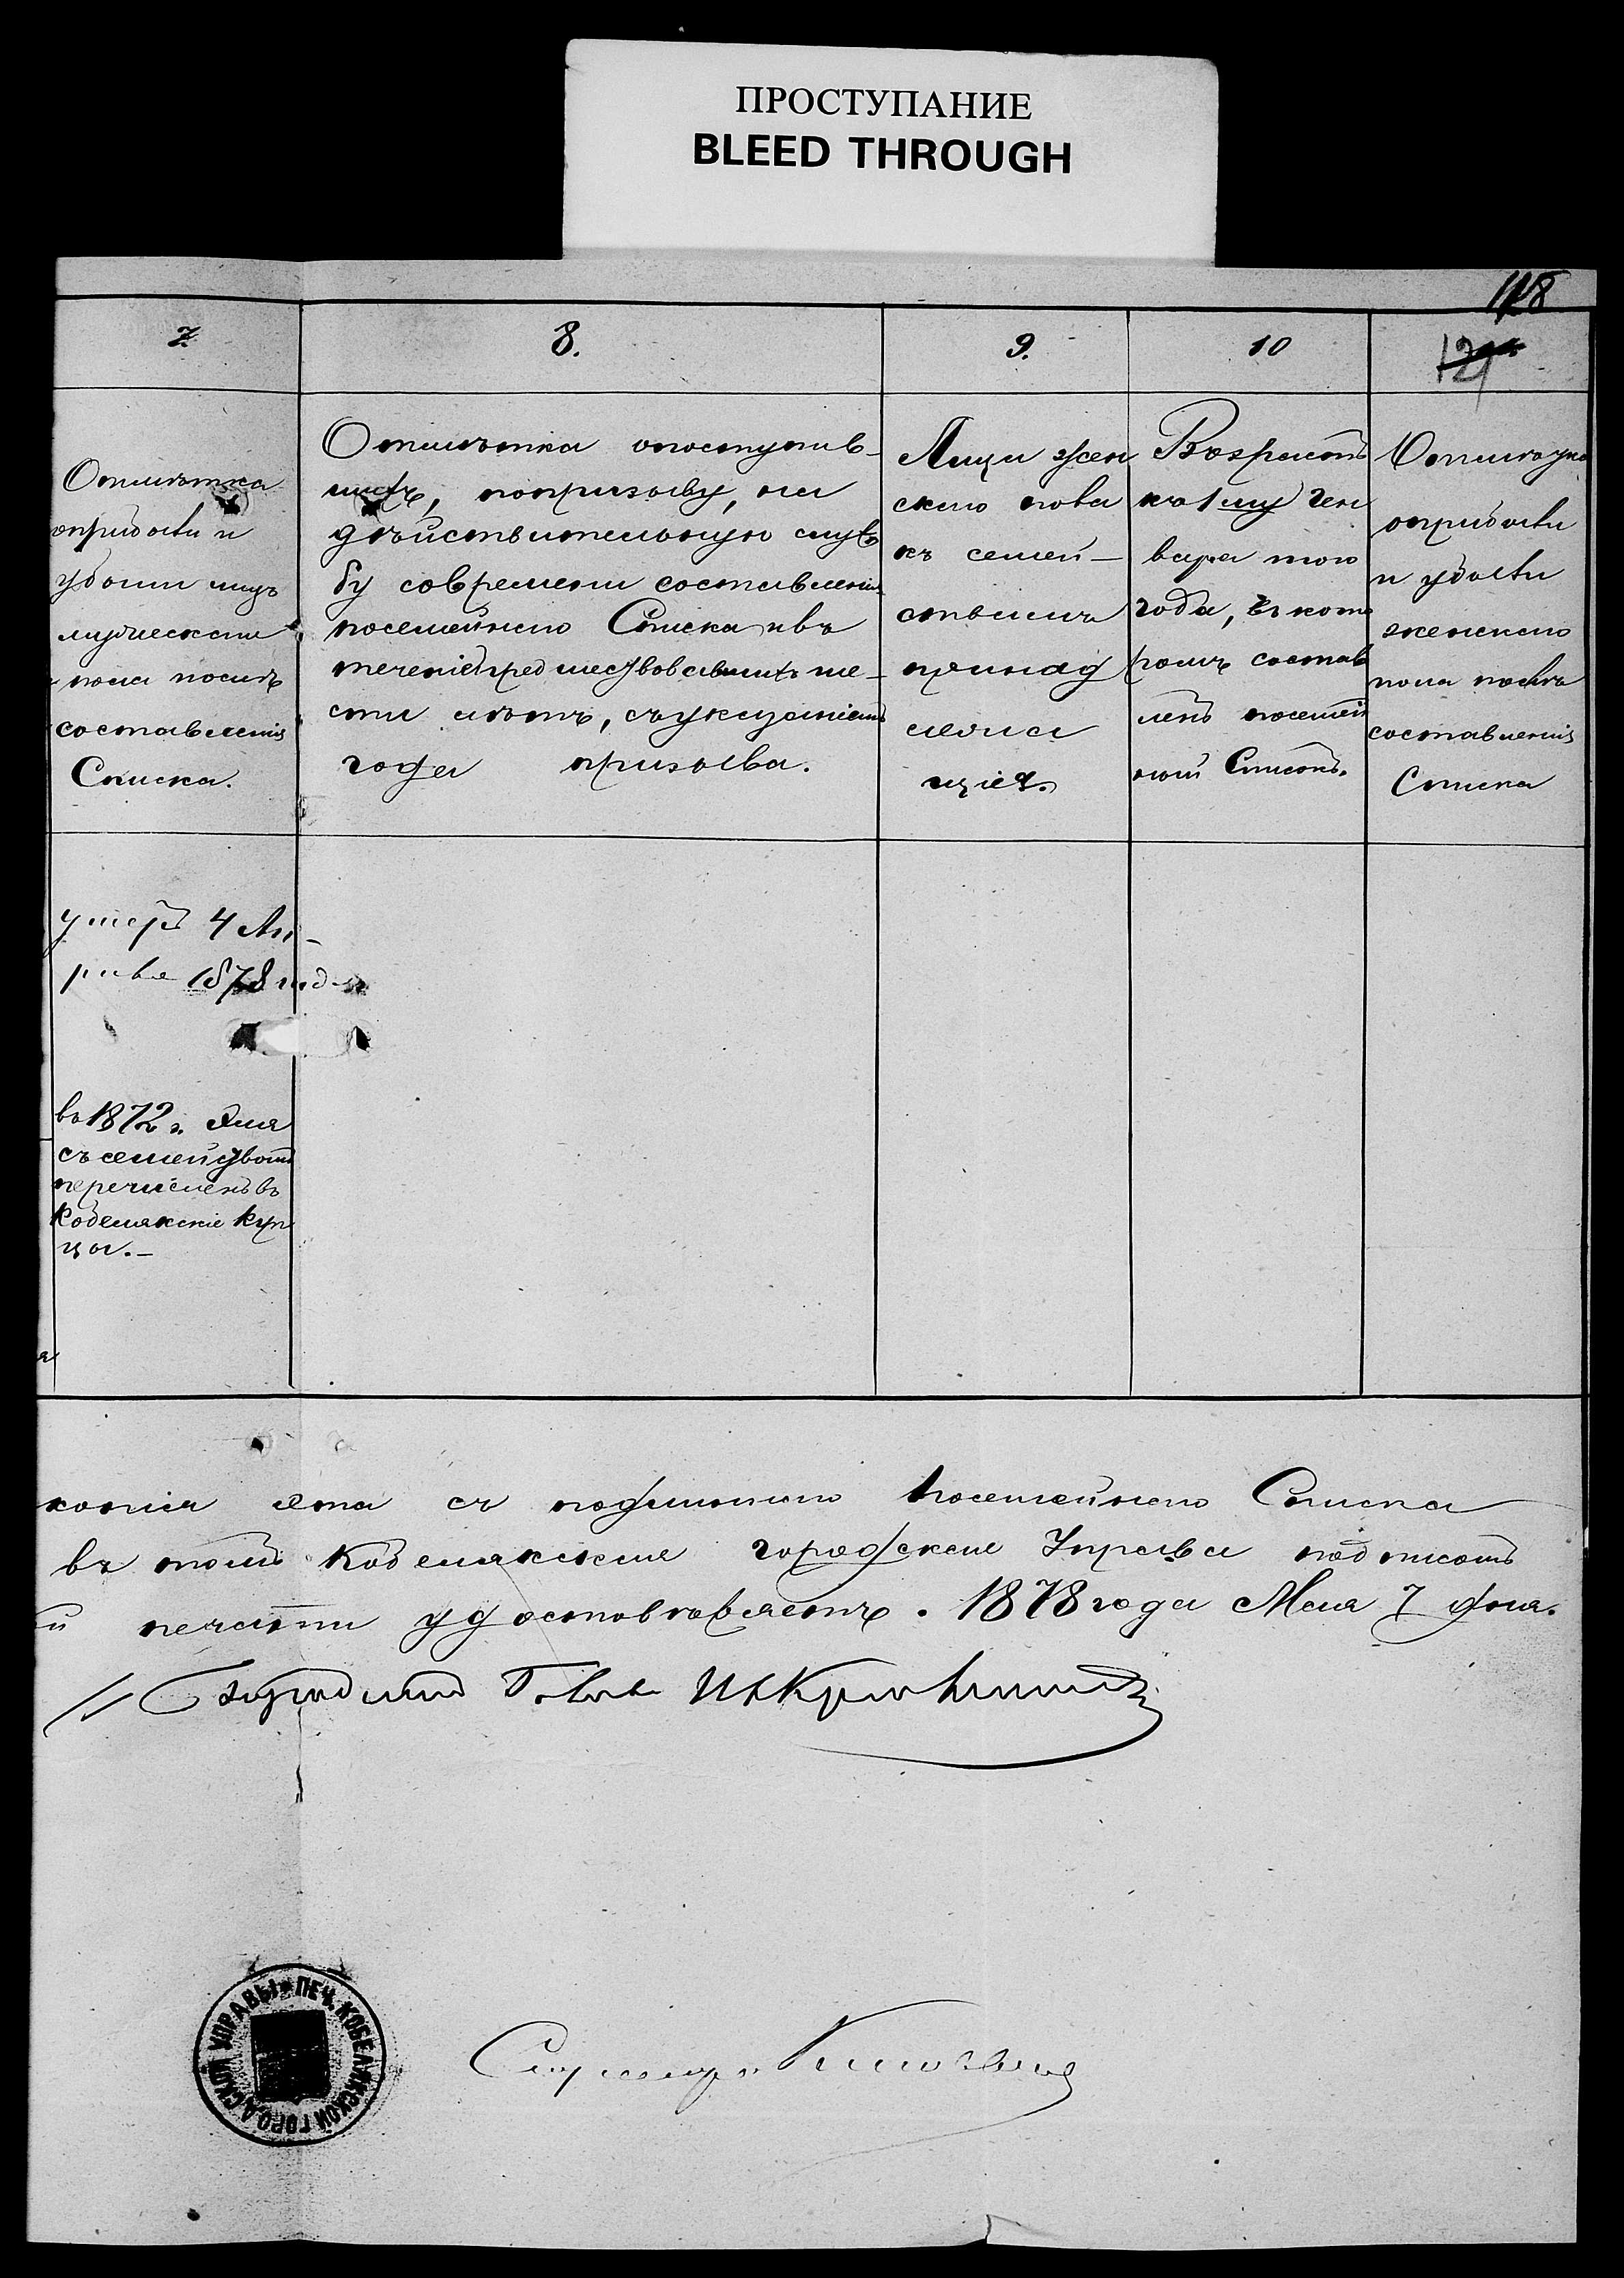 ПРОСТУПАНИЕ
BLEED THROUGH
118
7.
8.
9.
10
121
Отмѣтка
оприбыли и
убыли лицъ
мужескаго
пола послѣ
составленія
Списка.
Отмѣтка опоступив-
шихъ, попризыву, на
дѣйствительную служ
бу современи составленія
посемейнаго Списка ивъ
теченіе предшествовавшихъ ше-
сти лѣтъ, съуказаніемъ
года призыва.
Лица жен
скаго пола
къ семей-
ствамъ
принад
лежа
щія.
Возрастъ
на 1му Ген
варя того
года, въ кото
ромъ состав
ленъ посемей
ный Списокъ.
Отмѣтка
оприбыли
и убыли
женскаго
пола послѣ
составленія
Списка
умеръ 4 Ап-
рѣля 1878 года
въ 1872 г.
съ семействомъ
перечисленъ въ
Кобелякскіе Куп
цы.-
копія эта съ подлиннаго Посемейнаго Списка
въ томъ Кобелякская городская Управа подписомъ
и печати удостовѣряетъ. 1878 года Мая 7 дня.
Городской Голова
ПЕЧ. КОБЕЛЯКСКОЙ ГОРОДСКОЙ УПРАВЫ
Секретарь